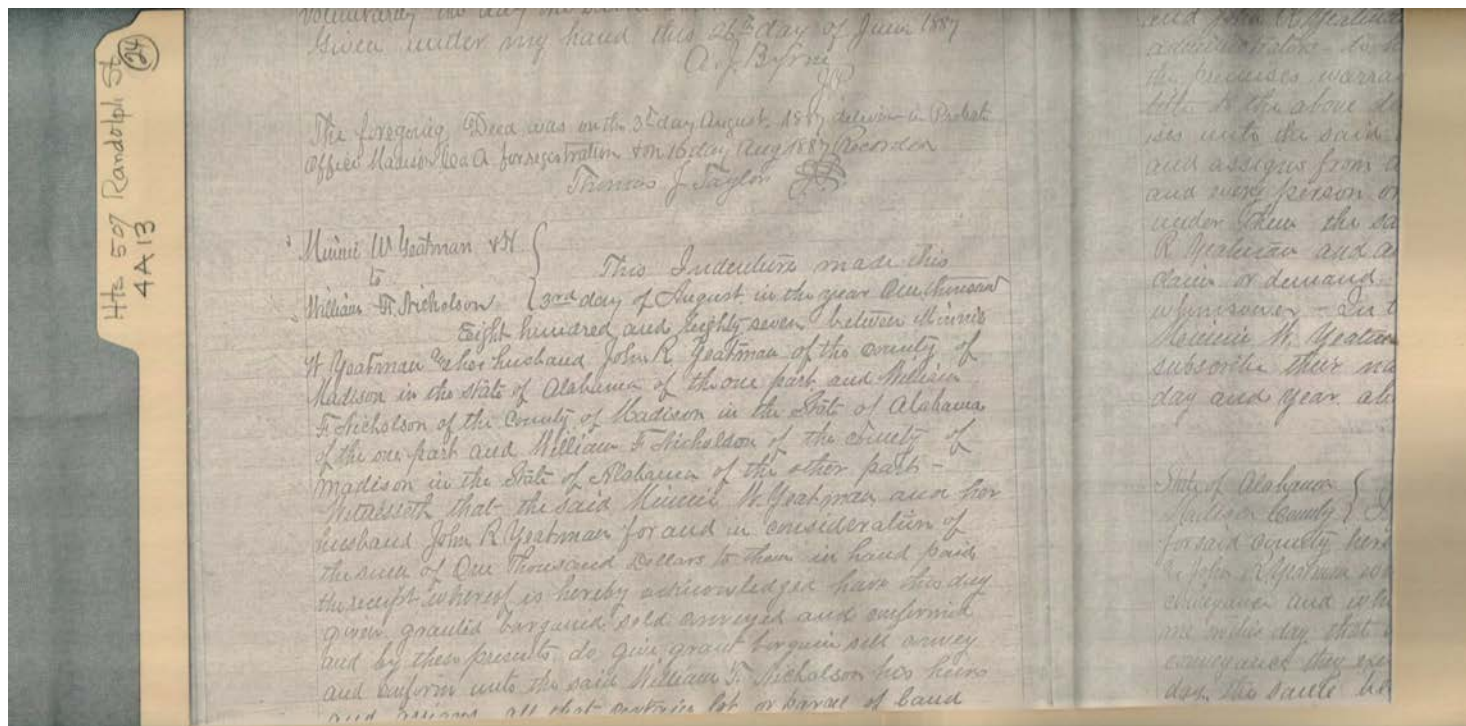 Hts 507 Randolph St
4A13
24
Given under my hand this 26th day of June 1887
A. J. Byrne
JP
The foregoing Deed was on the 3d day August 1887 deliver in Probate
Office Madison Co. A for registration & on 16 day Aug 1887 Recorded
Thomas J Taylor
Minnie W Yeatman & H
to
William F. Nicholson
This Indenture made this
3rd day of August in the year One thousand
Eight hundred and Eighty seven between Minnie
W Yeatman & her husband John R. Yeatman of the county of
Madison in the State of Alabama of the one part and William
F. Nicholson of the County of Madison in the State of Alabama
of the one part and William F Nicholson of the County of
Madison in the State of Alabama of the other part -
Witnesseth that the said Minnie W. Yeatman and her
husband John R Yeatman for and in consideration of
the sum of One Thousand Dollars to them in hand paid
the receipt whereof is hereby acknowledged have this day
given granted bargained sold conveyed and confirmed
and by these presents do give grant bargain sell convey
and confirm unto the said William F. Nicholson his heirs
and assigns all that certain lot or parcel of land
and John R Yeatman
administrators
the premises warra
title to the above de
ises unto the said
and assigns from
and every person or
under them the sa
R Yeatman and a
claim or demand
whomsoever - In t
Minnie W. Yeatm
subscribe their na
day and year ab
State of Alabama
Madison County
for said County here
& John R Yeatman wh
conveyance and who
me on this day that
conveyance they exe
day the same be